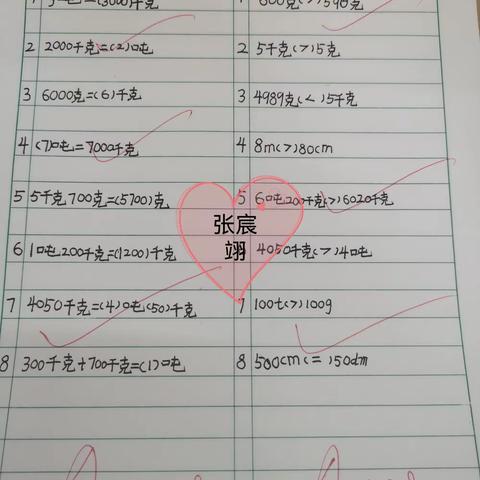 2 2000千克=(2)吨
3 6000克=(6)千克
4 (7)吨=7000千克
5 5千克700克=(5700)克
6 1吨200千克=(1200)千克
7 4050千克=(4)吨(50)千克
8 300千克+700千克=(1)吨
600克(>)590克
2 5千克(>)5克
3 4989克(<)5千克
4 8m(>)80cm
5 6吨200千克(>)6020千克
4050千克(>)4吨
7 100t(>)100g
8 500cm(=)50dm
张宸
翊